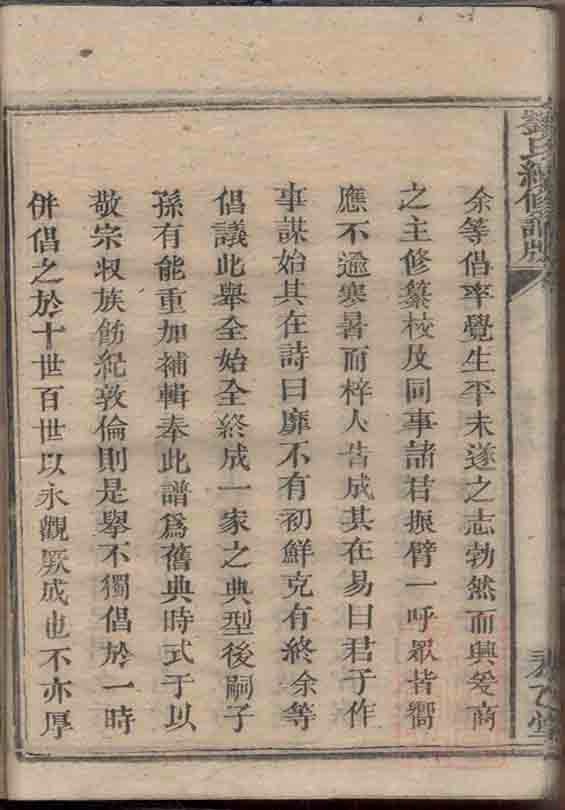 劉氏續修譜
余等倡率覺生平未遂之志勃然而興爰商
之主修纂校及同事諸君振臂一呼眾皆嚮
應不逾寒暑而梓人告成其在易曰君子作
事謀始其在詩曰靡不有初鮮克有終余等
倡議此舉全始全終成一家之典型後嗣子
孫有能重加補輯奉此譜為舊典時式于以
敬宗収族飭紀敦倫則是舉不獨倡於一時
併倡之於十世百世以永觀厥成也不亦厚